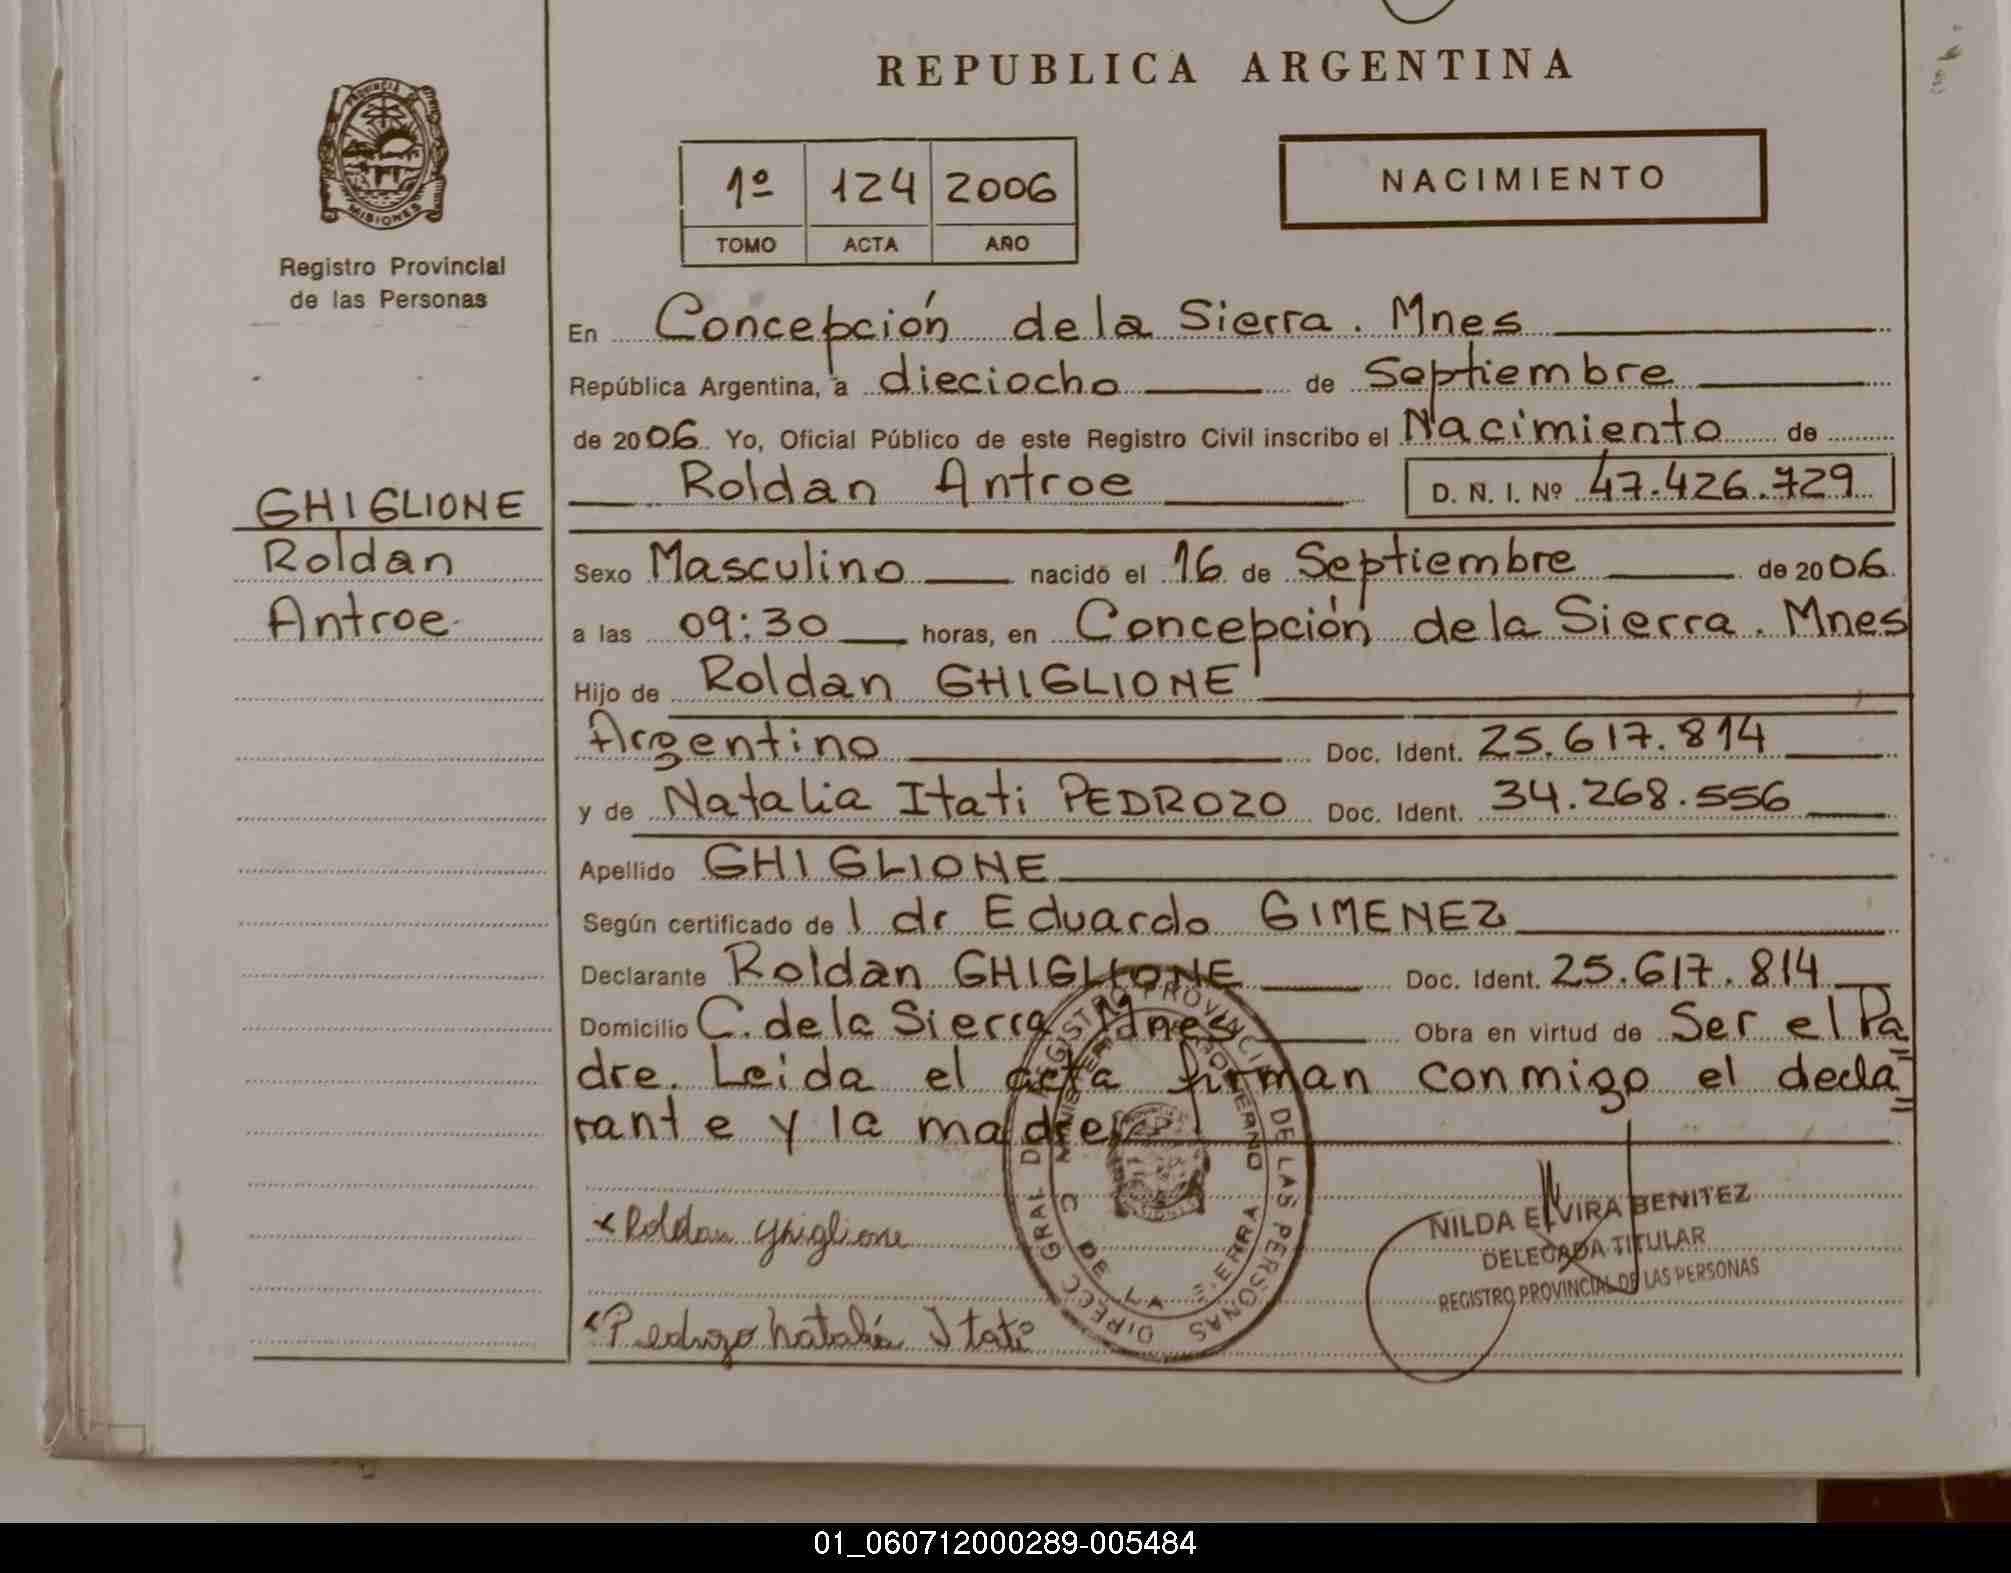 REPUBLICA ARGENTINA
PROVINCIA DE
MISIONES
Registro Provincial
de las Personas
1º 124 2006
TOMO ACTA AÑO
NACIMIENTO
En Concepción de la Sierra. Mnes
República Argentina, a dieciocho de Septiembre
de 2006 Yo, Oficial Público de este Registro Civil inscribo el Nacimiento de
Roldan Antroe D. N. I. Nº 47.426.729
GHIGLIONE
Roldan
Antroe
Sexo Masculino nacido el 16 de Septiembre de 2006
a las 09:30 horas, en Concepción de la Sierra. Mnes
Hijo de Roldan GHIGLIONE
Argentino Doc. Ident. 25.617.814
y de Natalia Itati PEDROZO Doc. Ident. 34.268.556
Apellido GHIGLIONE
Según certificado de l dr Eduardo GIMENEZ
Declarante Roldan GHIGLIONE Doc. Ident. 25.617.814
Domicilio C. de la Sierra Mnes Obra en virtud de Ser el Pa
dre. Leida el acta firman conmigo el decla
rante y la madre
x Roldan Ghiglione
x Pedrozo Natalia Itati
DIRECC GRAL DE REGISTRO PROVINCIAL DE LAS PERSONAS
DE LA SIERRA
NILDA ELVIRA BENITEZ
DELEGADA TITULAR
REGISTRO PROVINCIAL DE LAS PERSONAS
01_060712000289-005484